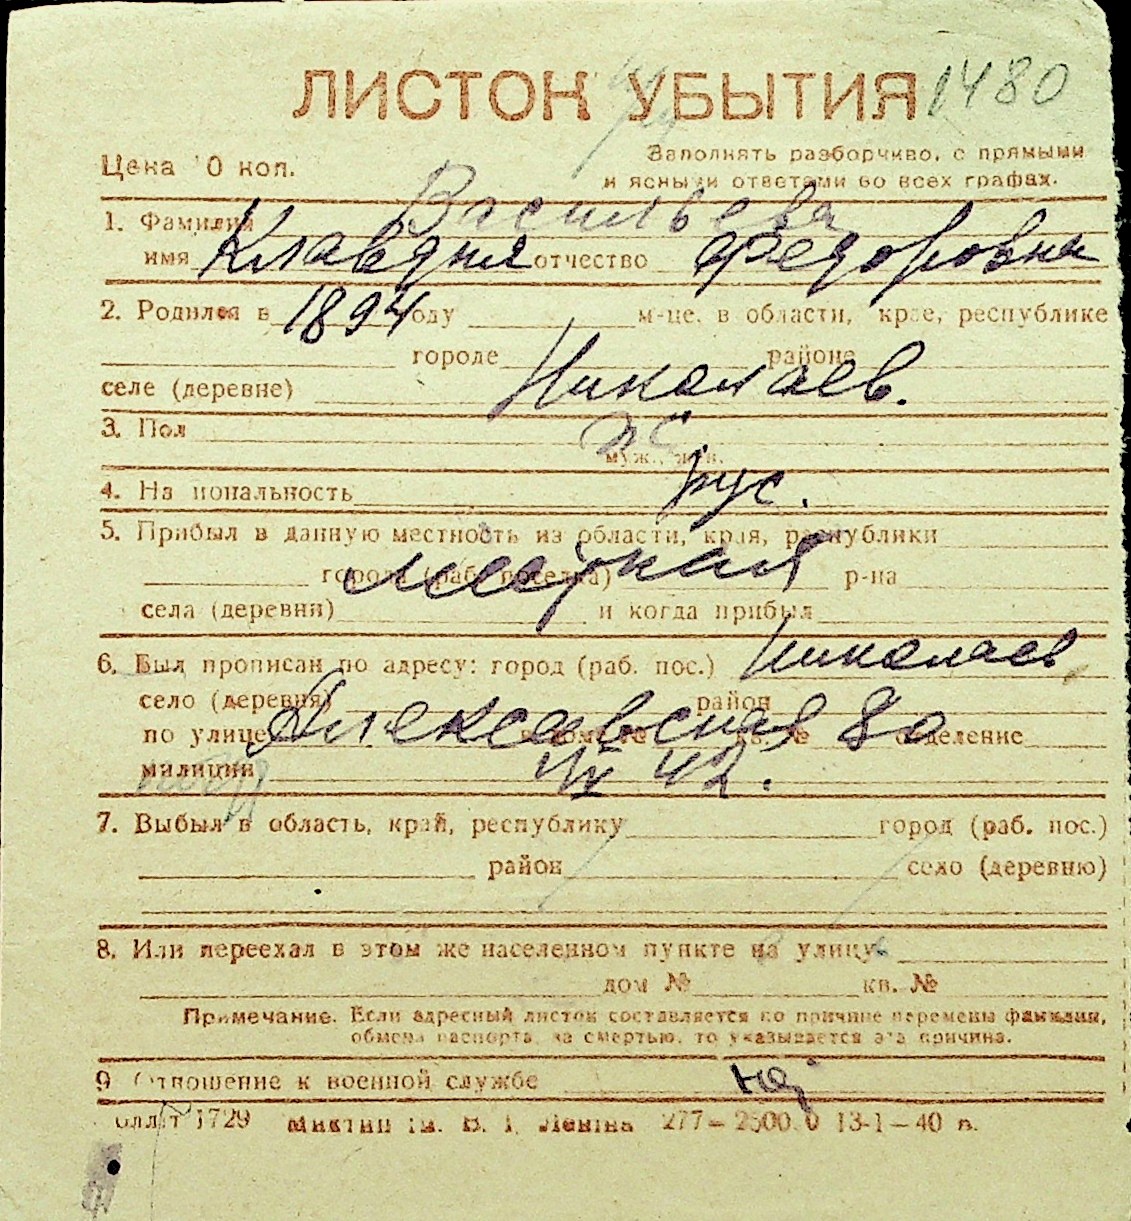 ЛИСТОК УБЫТИЯ 1480
Цена 10 коп.
Заполнять разборчиво, с прямыми
и ясными ответами во всех графах.
1. Фамилия Васильева
имя Клавдия отчество Федоровна
2. Родился в 1894 году м-це, в области, крае, республике
городе районе
селе (деревне) Николаев.
3. Пол ж
муж., жен.
4. Национальность рус.
5. Прибыл в данную местность из области, края, республики
города (раб. поселка) р-на
села (деревни) и когда прибыл
6. Был прописан по адресу: город (раб. пос.) Николаев
село (деревня) район
по улице Алексеевская 8а в доме № кв. № отделение
милиции IV 42.
7. Выбыл в область, край, республику город (раб. пос.)
район село (деревню)
8. Или переехал в этом же населенном пункте на улицу
дом № кв. №
Примечание. Если адресный листок составляется по причине перемены фамилии,
обмена паспорта, за смертью, то указывается эта причина.
9. Отношение к военной службе
1729 277— 2500 0 13-1—40 в.